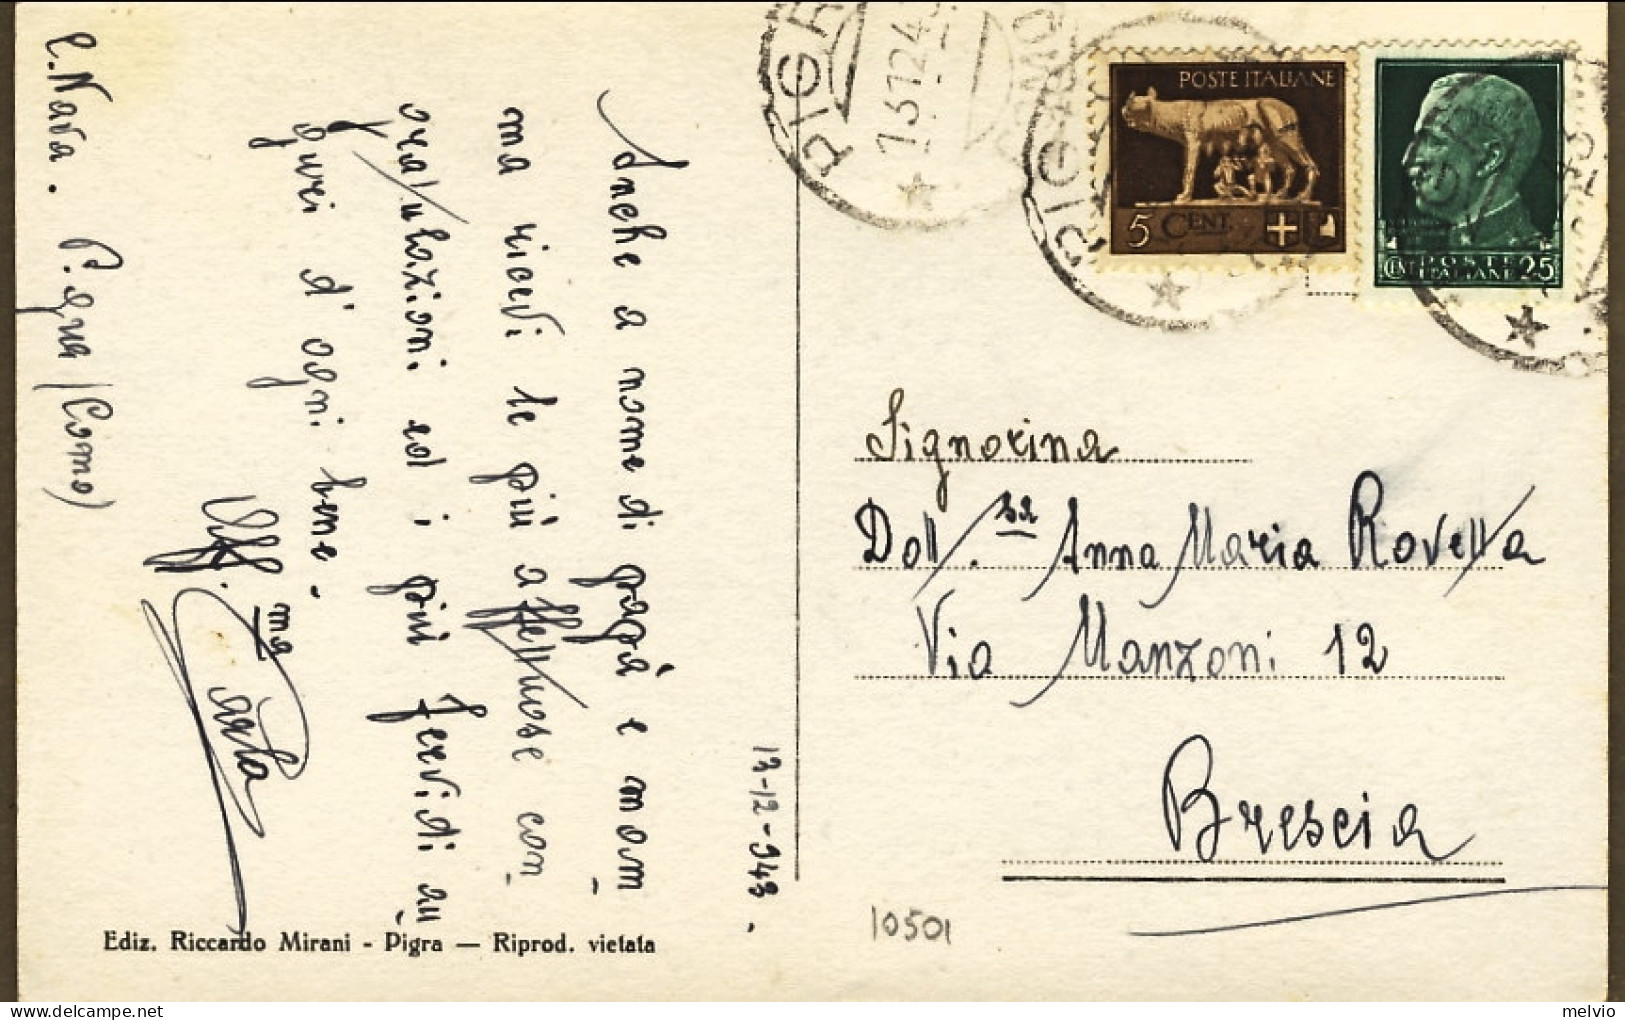 Anche a nome di papà e mam
ma ricevi le più affettuose con
gratulazioni ed i più fervidi au
guri d'ogni bene.
Aff.ma Carla
C. Nava. Pigra (Como)
13-12-943.
Ediz. Riccardo Mirani - Pigra — Riprod. vietata
PIGRA
13 12 43
COMO
POSTE ITALIANE
5 CENT.
POSTE
ITALIANE
CENT 25
Signorina
Dott.sa Anna Maria Rovetta
Via Manzoni 12
Brescia
10501
melvio